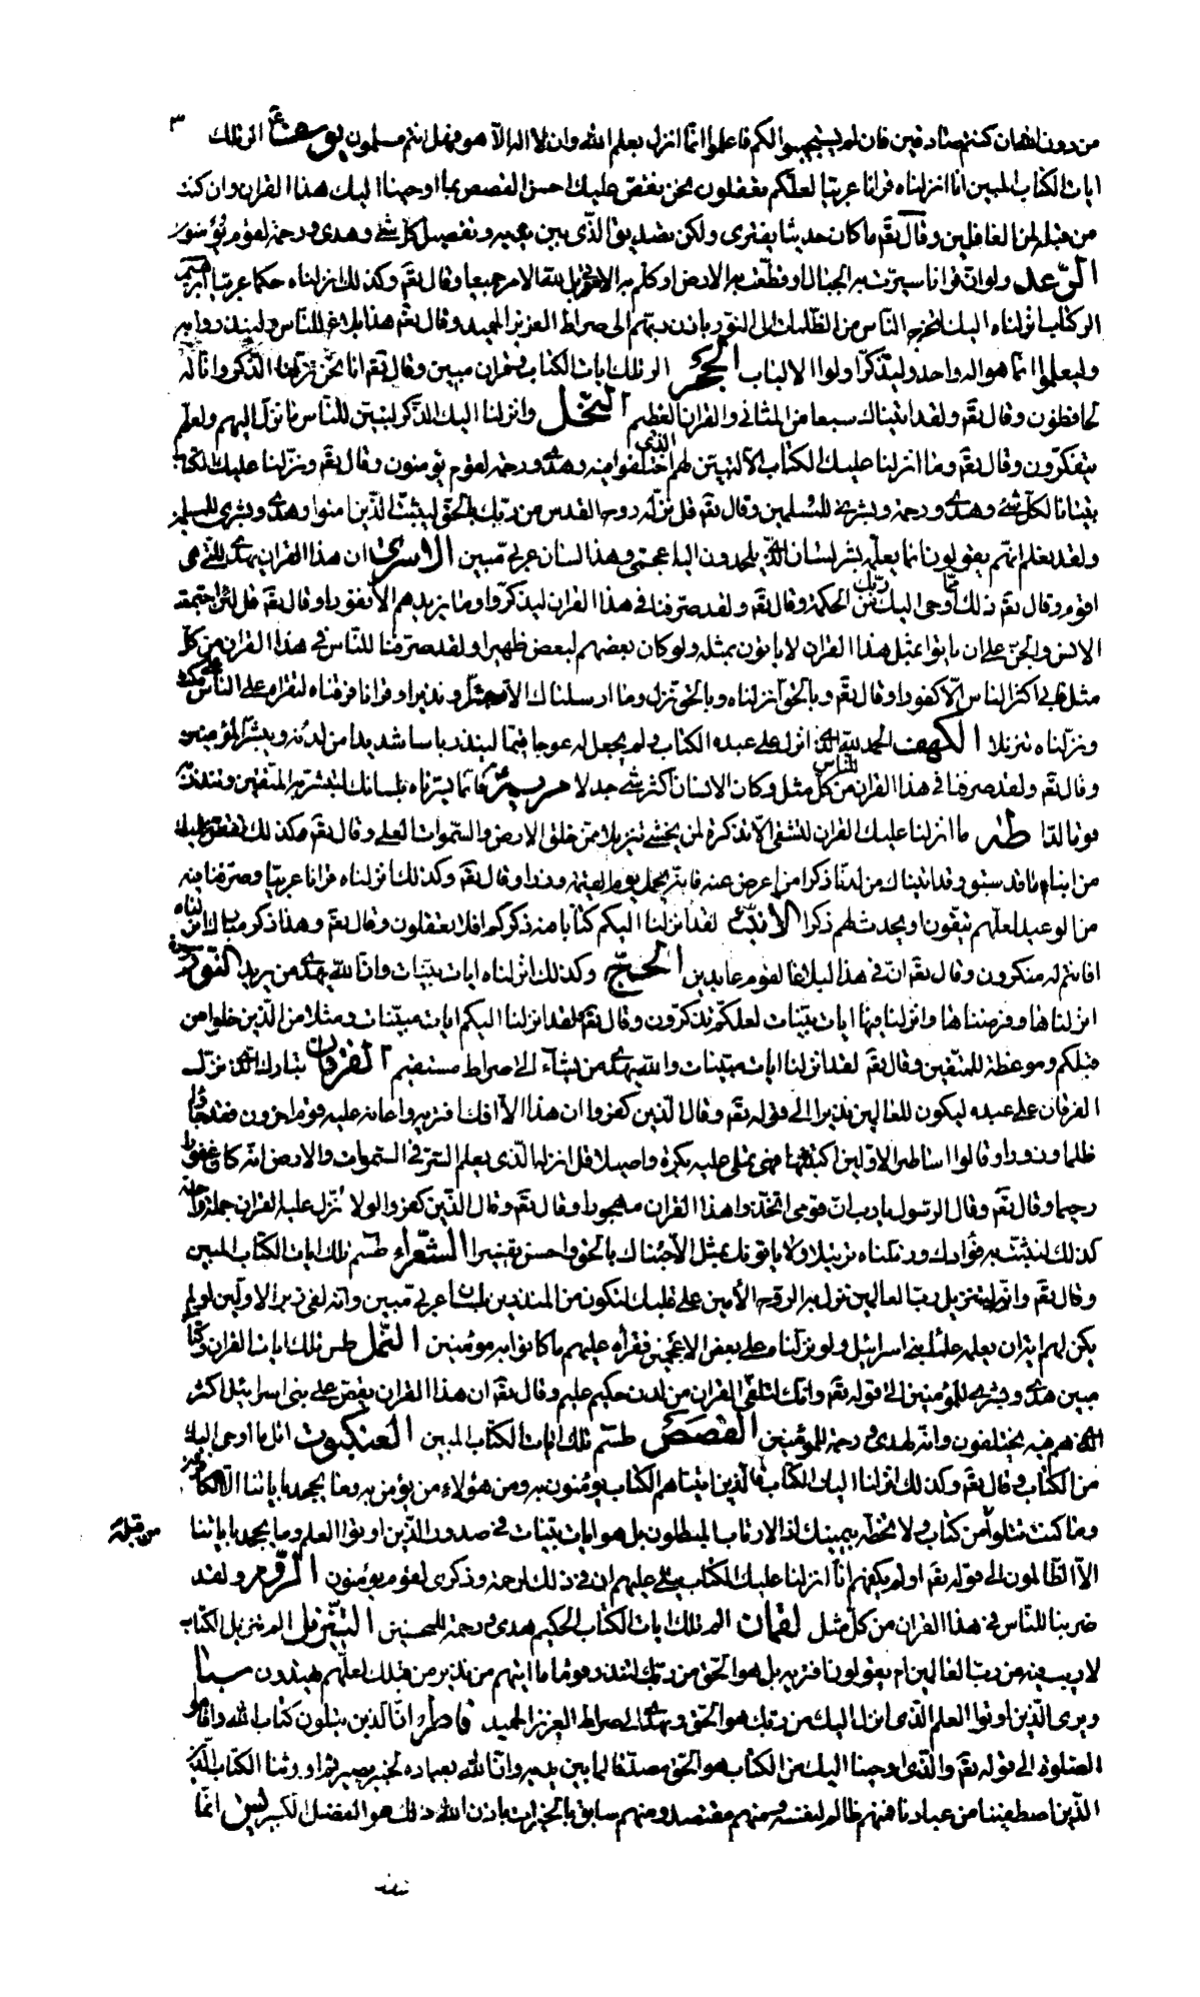 ٣
من دون الله ان كنتم صادقين فان لم يستجيبوا لكم فاعلموا انما انزل بعلم الله وان لا اله الا هو فهل انتم مسلمون يوسف الر تلك
ايات الكتاب المبين انا انزلناه قرانا عربيا لعلكم تعقلون نحن نقص عليك احسن القصص بما اوحينا اليك هذا القران وان كنت
من قبله لمن الغافلين وقال تعم ما كان حديثا يفترى ولكن تصديق الذي بين يديه وتفصيل كل شئ وهدى ورحمة لقوم يؤمنون
الرعد ولو ان قرانا سيرت به الجبال او قطعت به الارض او كلم به الموتى بل لله الامر جميعا وقال تعم وكذلك انزلناه حكما عربيا ابرهيم
الر كتاب انزلناه اليك لتخرج الناس من الظلمات الى النور باذن ربهم الى صراط العزيز الحميد وقال تعم هذا بلاغ للناس ولينذروا به
وليعلموا انما هو اله واحد وليذكر اولوا الالباب الحجر الر تلك ايات الكتاب وقران مبين وقال تعم انا نحن نزلنا الذكر وانا له
لحافظون وقال تعم ولقد اتيناك سبعا من المثاني والقران العظيم النحل وانزلنا اليك الذكر لتبين للناس ما نزل اليهم ولعلهم
يتفكرون وقال تعم وما انزلنا عليك الكتاب الا لتبين لهم الذي اختلفوا فيه وهدى ورحمة لقوم يؤمنون وقال تعم ونزلنا عليك الكتاب
تبيانا لكل شئ وهدى ورحمة وبشرى للمسلمين وقال تعم قل نزله روح القدس من ربك بالحق ليثبت الذين امنوا وهدى وبشرى للمسلمين
ولقد نعلم انهم يقولون انما يعلمه بشر لسان الذي يلحدون اليه اعجمي وهذا لسان عربي مبين الاسرى ان هذا القران يهدي للتي هي
اقوم وقال تعم ذلك مما اوحى اليك ربك من الحكمة وقال تعم ولقد صرفنا في هذا القران ليذكروا وما يزيدهم الا نفورا وقال تعم قل لئن اجتمعت
الانس والجن على ان ياتوا بمثل هذا القران لا ياتون بمثله ولو كان بعضهم لبعض ظهيرا ولقد صرفنا للناس في هذا القران من كل
مثل فابى اكثر الناس الا كفورا وقال تعم وبالحق انزلناه وبالحق نزل وما ارسلناك الا مبشرا ونذيرا وقرانا فرقناه لتقراه على الناس على مكث
ونزلناه تنزيلا الكهف الحمد لله الذي انزل على عبده الكتاب ولم يجعل له عوجا قيما لينذر باسا شديدا من لدنه ويبشر المؤمنين
وقال تعم ولقد صرفنا في هذا القران للناس من كل مثل وكان الانسان اكثر شئ جدلا مريم فانما يسرناه بلسانك لتبشر به المتقين وتنذر به
قوما لدا طه ما انزلنا عليك القران لتشقى الا تذكرة لمن يخشى تنزيلا ممن خلق الارض والسموات العلى وقال تعم وكذلك نقص عليك
من انباء ما قد سبق وقد اتيناك من لدنا ذكرا من اعرض عنه فانه يحمل يوم القيمة وزرا وقال تعم وكذلك انزلناه قرانا عربيا وصرفنا فيه
من الوعيد لعلهم يتقون او يحدث لهم ذكرا الانبياء لقد انزلنا اليكم كتابا فيه ذكركم افلا تعقلون وقال تعم وهذا ذكر مبارك انزلناه
افانتم له منكرون وقال تعم ان في هذا لبلاغا لقوم عابدين الحج وكذلك انزلناه ايات بينات وان الله يهدي من يريد النور سورة
انزلناها وفرضناها وانزلنا فيها ايات بينات لعلكم تذكرون وقال تعم ولقد انزلنا اليكم ايات مبينات ومثلا من الذين خلوا من
قبلكم وموعظة للمتقين وقال تعم لقد انزلنا ايات مبينات والله يهدي من يشاء الى صراط مستقيم الفرقان تبارك الذي نزل
الفرقان على عبده ليكون للعالمين نذيرا الى قوله تعم وقال الذين كفروا ان هذا الا افك افتريه واعانه عليه قوم اخرون فقد جاؤا
ظلما وزورا وقالوا اساطير الاولين اكتتبها فهي تملى عليه بكرة واصيلا قل انزله الذي يعلم السر في السموات والارض انه كان غفورا
رحيما وقال تعم وقال الرسول يا رب ان قومي اتخذوا هذا القران مهجورا وقال تعم وقال الذين كفروا لولا نزل عليه القران جملة واحدة
كذلك لنثبت به فؤادك ورتلناه ترتيلا ولا ياتونك بمثل الا جئناك بالحق واحسن تفسيرا الشعراء طسم تلك ايات الكتاب المبين
وقال تعم وانه لتنزيل رب العالمين نزل به الروح الامين على قلبك لتكون من المنذرين بلسان عربي مبين وانه لفي زبر الاولين اولم
يكن لهم اية ان يعلمه علماء بني اسرائيل ولو نزلناه على بعض الاعجمين فقراه عليهم ما كانوا به مؤمنين النمل طس تلك ايات القران وكتاب
مبين هدى وبشرى للمؤمنين الى قوله تعم وانك لتلقى القران من لدن حكيم عليم وقال تعم ان هذا القران يقص على بني اسرائيل اكثر
الذي هم فيه يختلفون وانه لهدى ورحمة للمؤمنين القصص طسم تلك ايات الكتاب المبين العنكبوت اتل ما اوحى اليك
من الكتاب وقال تعم وكذلك انزلنا اليك الكتاب فالذين اتيناهم الكتاب يؤمنون به ومن هؤلاء من يؤمن به وما يجحد باياتنا الا الكافرون
وما كنت تتلو من قبله من كتاب ولا تخطه بيمينك اذا لارتاب المبطلون بل هو ايات بينات في صدور الذين اوتوا العلم وما يجحد باياتنا
الا الظالمون الى قوله تعم اولم يكفهم انا انزلنا عليك الكتاب يتلى عليهم ان في ذلك لرحمة وذكرى لقوم يؤمنون الروم ولقد
ضربنا للناس في هذا القران من كل مثل لقمان الم تلك ايات الكتاب الحكيم هدى ورحمة للمحسنين التنزيل الم تنزيل الكتاب
لا ريب فيه من رب العالمين ام يقولون افتريه بل هو الحق من ربك لتنذر قوما ما اتيهم من نذير من قبلك لعلهم يهتدون سبا
ويرى الذين اوتوا العلم الذي انزل اليك من ربك هو الحق ويهدي الى صراط العزيز الحميد فاطر ان الذين يتلون كتاب الله واقاموا
الصلوة الى قوله تعم والذي اوحينا اليك من الكتاب هو الحق مصدقا لما بين يديه وان الله بعباده لخبير بصير ثم اورثنا الكتاب الذين
الذين اصطفينا من عبادنا فمنهم ظالم لنفسه ومنهم مقتصد ومنهم سابق بالخيرات باذن الله ذلك هو الفضل الكبير يس انما
تنذر